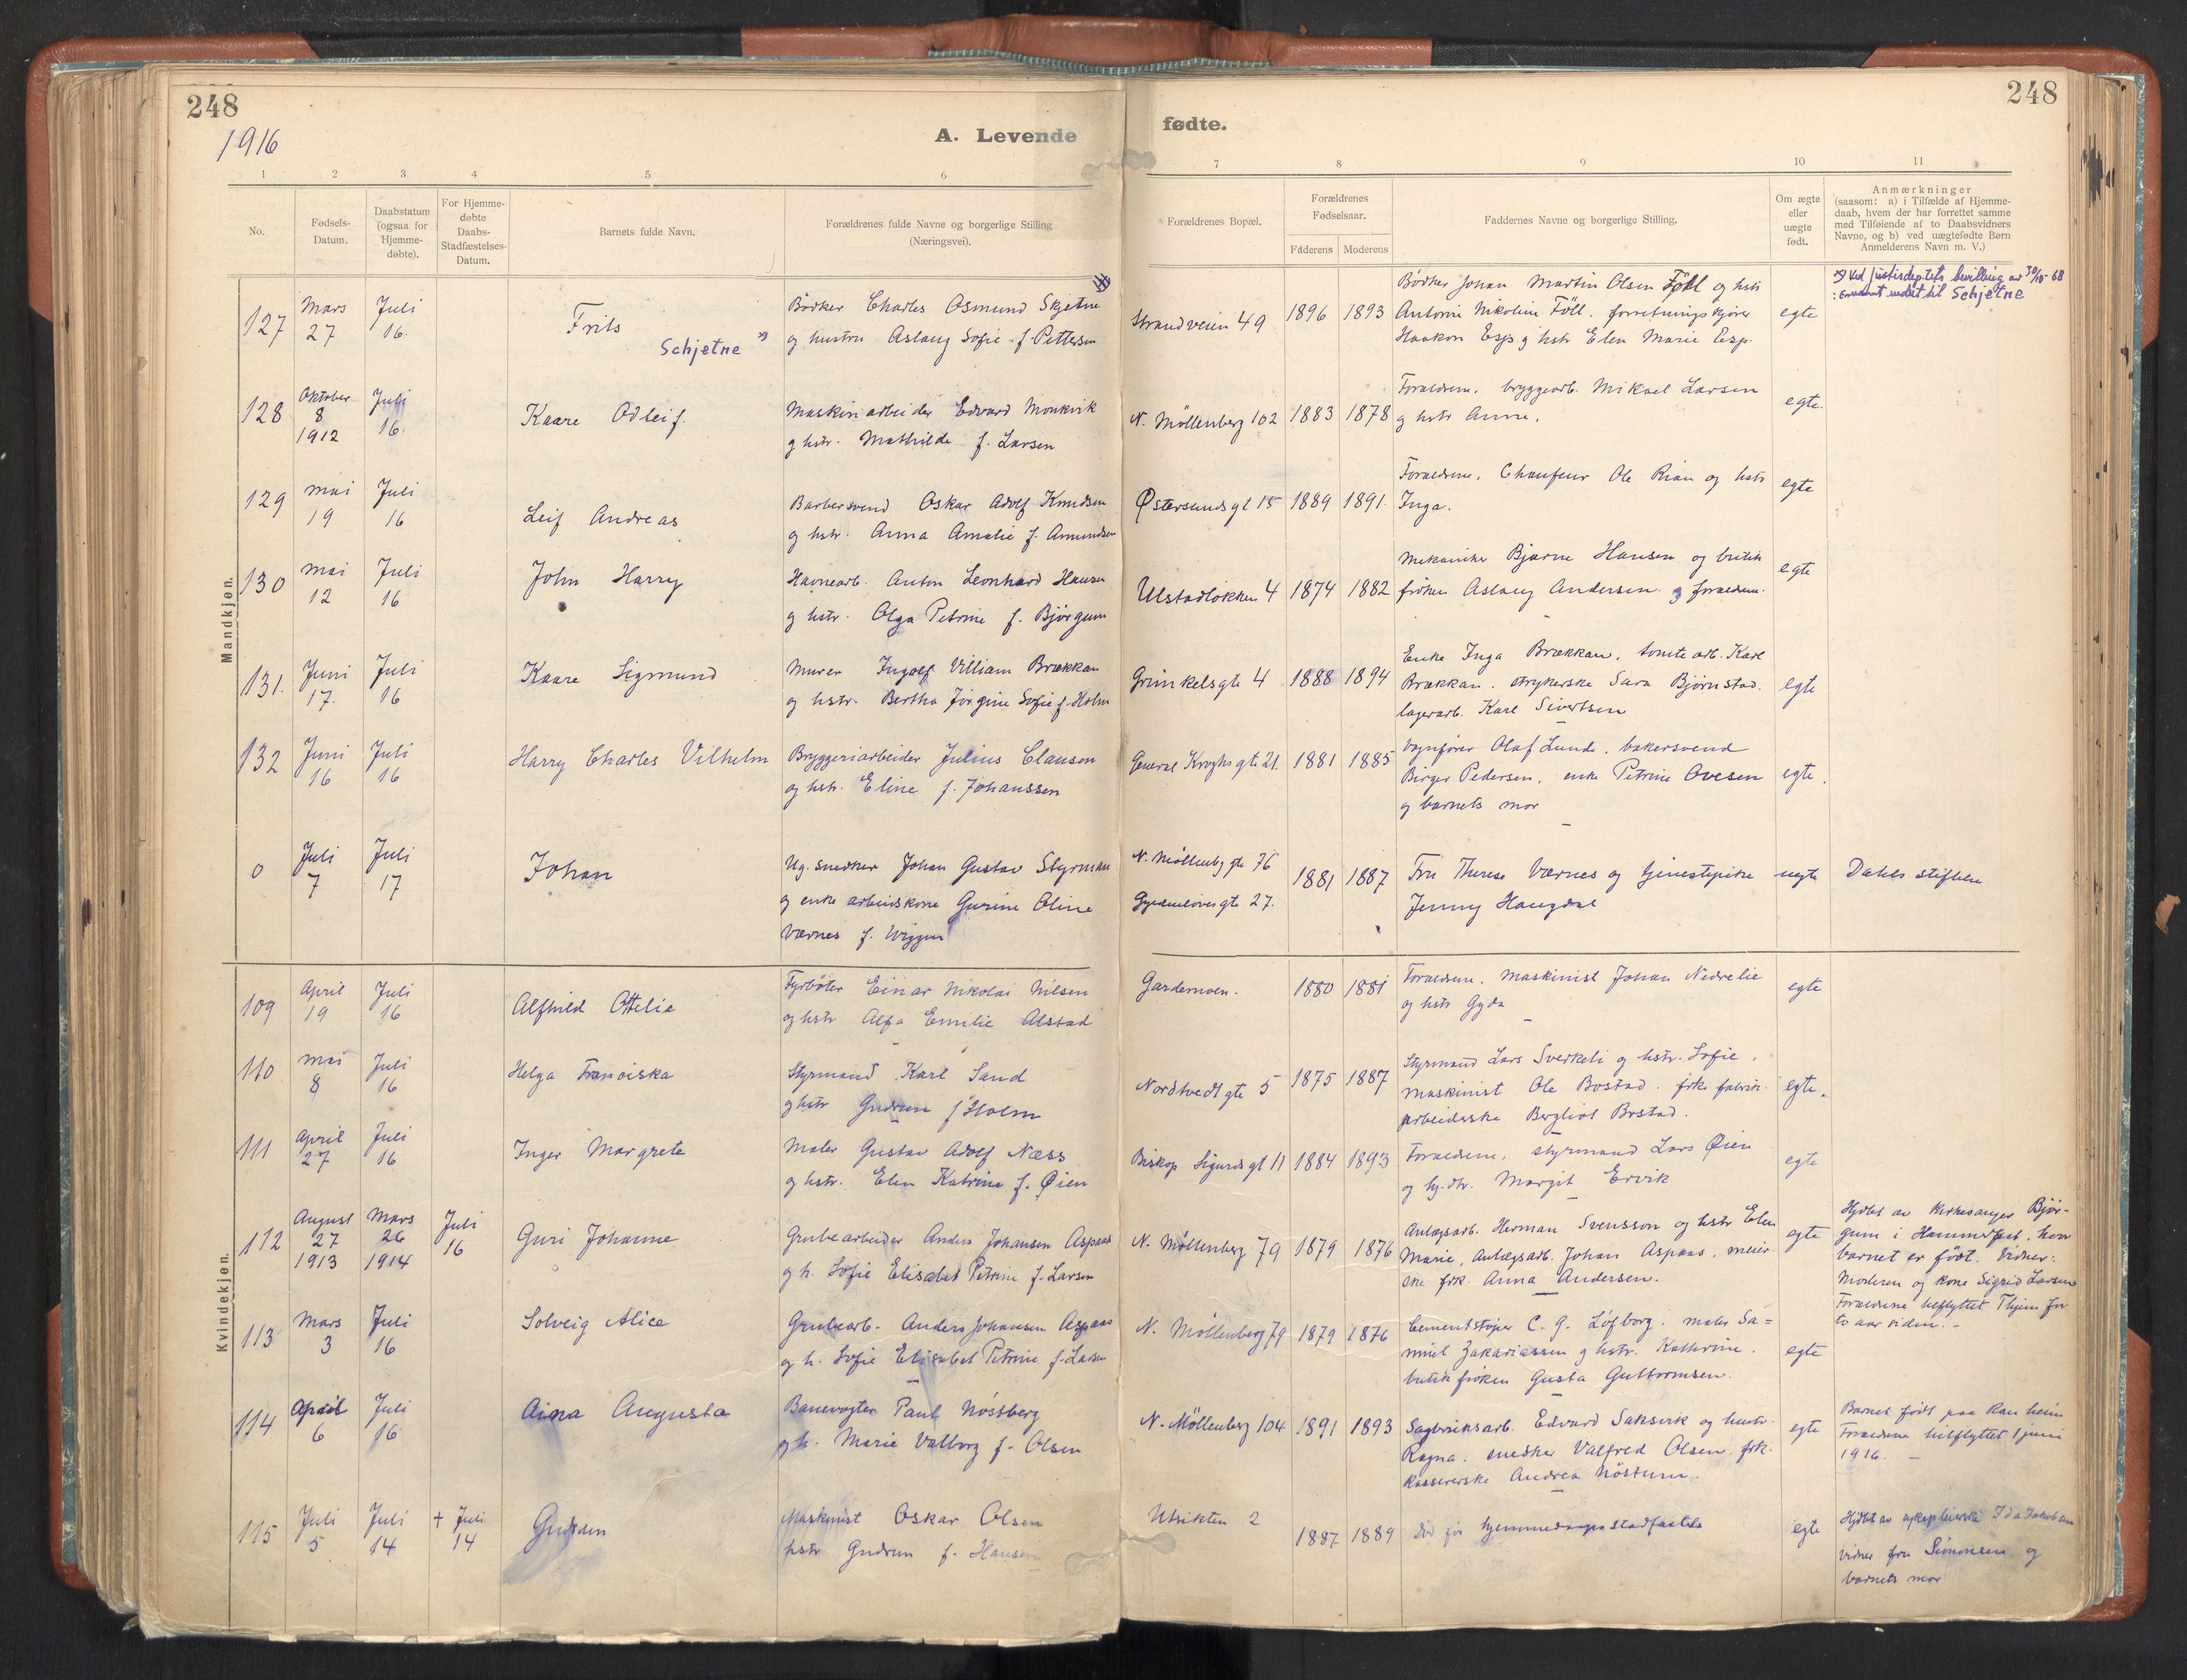 248
248
1916
A. Levende fødte.
1 2 3 4 5 6 7 8 9 10 11
No.
Fødsels-
Datum.
Daabstatum
(ogsaa for
Hjemme-
døbte).
For Hjemme-
døbte
Daabs-
Stadfæstelses-
Datum.
Barnets fulde Navn.
Forældrenes fulde Navne og borgerlige Stilling
(Næringsvei).
Forældrenes Bopæl.
Forældrenes
Fødselsaar.
Faderens
Moderens
Faddernes Navne og borgerlige Stilling.
Om ægte
eller
uægte
født.
Anmærkninger
(saasom: a) i Tilfælde af Hjemme-
daab, hvem der har forrettet samme
med Tilføiende af to Daabsvidners
Navne, og b) ved uægtefødte Børn
Anmelderens Navn m. V.)
Mandkjøn.
127
Mars
27
Juli
16.
Frits
Schjetne x)
Bødker Charles Osmund Skjetne
og hustru Aslaug Sofie f. Pettersen
Strandveien 49
1896
1893
Bødker Johan Martin Olsen Föll og hstr
Antonie Nikoline Föll. forretningskjører
Haakon Esp og hstr Elen Marie Esp.
egte
x) Ved Justisdeptets bevilling av 30/10-68
endret til Schjetne
128
Oktober
8
1912
Juli
16.
Kaare Odleif.
Maskinarbeider Edvard Monkvik
g hstr. Mathilde f. Larsen
N. Möllenberg 102
1883
1878
Forældrene, bryggearb. Mikael Larsen
g hstr Anne.
egte.
129
mai
19
Juli
16
Leif Andreas
Barbersvend Oskar Adolf Knudsen
og hstr. Anna Amalie f. Amundsen
Østersundsgt 15
1889
1891.
Forældrene, Chauffeur Ole Rian og hstr
Inga.
egte
130
mai
12
Juli
16
John Harry
Havnearb. Anton Leonhard Hansen
g hstr. Olga Petrine f. Bjørgum
Ulstadløkken 4
1874
1882
Mekaniker Bjarne Hansen og butik
frøken Aslaug Andersen g forældrene.
egte
131.
Juni
17.
Juli
16
Kaare Sigmund
Murer Ingolf Villiam Brækkan
og hstr. Bertha Jørgine Sofie f. Holm
Grinkelsgte 4
1888
1894
Enke Inga Brækkan, tomtearb. Karl
Brækkan, strykerske Sara Bjørnstad.
lagerarb. Karl Sivertsen
egte
132
Juni
16
Juli
16
Harry Charles Vilhelm
Bryggeriarbeider Julius Clausen
og hstr. Eline f. Johanssen
General Kroghsgte 21.
1881
1885
Vognfører Olaf Lunde, bakersvend
Birger Pedersen, enke Petrine Ovesen
g barnets mor
egte.
0
Juli
7
Juli
17
Johan
Ug. snedker Johan Gustav Styrman
og enke arbeidskone Gurine Oline
Værnes f. Wiggen
N. Möllenbg gte 76
Gyldenløvesgte 27.
1881
1887
Fru Therese Værnes og tjenestepike
Jenny Haugdal
uegte
Dahls stiftelse
Kvindekjøn.
109
April
19
Juli
16
Alfhild Ottelie
Fyrbøter Einar Nikolai Nilsen
og hstr Alfa Emilie Alstad
Gardemoen.
1880
1881
Forældrene, maskinist Johan Nedrelie
og hstr Gyda
egte
110
mai
8
Juli
16
Helga Franciska
Styrmand Karl Sand
g hstr Gudrun f Holm
Nordtvedtgte 5
1875
1887
Styrmand Lars Sverkeli og hstr. Sofie,
maskinist Ole Bostad. frk. fabrik-
arbeiderske Bergliot Bostad.
egte.
111
April
27
Juli
16
Inger Margrete
Maler Gustav Adolf Næss
og hstr. Elen Katrine f. Øien
Biskop Sigurdsgt 11
1884
1893
Forældrene, styrmand Lars Øien
og hj.dtr. Margit Ervik
egte
112
August
27
1913
Mars
26
1914
Juli
16
Guri Johanne
Grubearbeider Anders Johansen Aspaas
g h. Sofie Elisabet Petrine f. Larsen
N. Møllenberg 79
1879
1876
Anlægsarb. Herman Svensson og hstr Elen
Marie, Anlægsarb. Johan Aspaas, meier-
ske frk. Anna Andersen.
egte
Hjdbt av kirkesanger Bjør-
gum i Hammerfest, hvor
barnet er født. Vidner:
Moderen og kone Sigrid Larsen
Forældrene tilflyttet Thjem for
to aar siden. -
113
Mars
3
Juli
16
Solveig Alice
Grubearb. Anders Johansen Aspaas
og h. Sofie Elisabet Petrine f. Larsen
N. Møllenberg 79
1879
1876
Cementstøper C. G. Løfborg. maler Sa=
muel Zakariassen g hstr. Kathrine.
butikfrøken Gusta Guttormsen.
egte
114
April
6
Juli
16
Aina Augusta
Banevogter Paul Nöstberg
g h. Marie Valborg f. Olsen
N. Möllenberg 104
1891
1893
Sagbruksarb. Edvard Saksvik og hustr.
Ragna, snedker Valfred Olsen. frk.
kassererske Andrea Nöstum.
egte
Barnet født paa Ranheim
Forældrene tilflyttet 1 juni
1916. -
115
Juli
5
Juli
14
+ Juli
14
Gudrun
Maskinist Oskar Olsen
hstr Gudrun f. Hansen
Utsikten 2
1887
1889
Död för hjemmedaaps stadfæstelse
egte
Hjdbt av sykepleierske Ida Jakobsen
Vidner fru Simonsen og
barnets mor